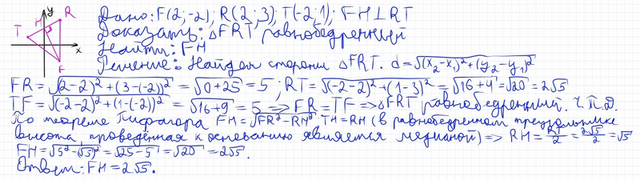 Дано: F(2;-2); R(2;3); T(-2;1); FH⊥RT
Доказать: △FRT равнобедренный
Найти: FH
Решение: Найдём стороны △FRT. d=√((x₂-x₁)²+(y₂-y₁)²)
FR=√((2-2)²+(3-(-2))²)=√(0+25)=5; RT=√((-2-2)²+(1-3)²)=√(16+4)=√20=2√5
TF=√((-2-2)²+(1-(-2))²)=√(16+9)=5 => FR=TF => △FRT равнобедренный. ч.т.д.
По теореме Пифагора FH=√(FR²-RH²). TH=RH (в равнобедренном треугольнике
высота, проведённая к основанию является медианой) => RH=RT/2=2√5/2=√5
FH=√(5²-√5)²=√(25-5)=√20=2√5.
Ответ: FH=2√5.
y
T
H
R
x
F